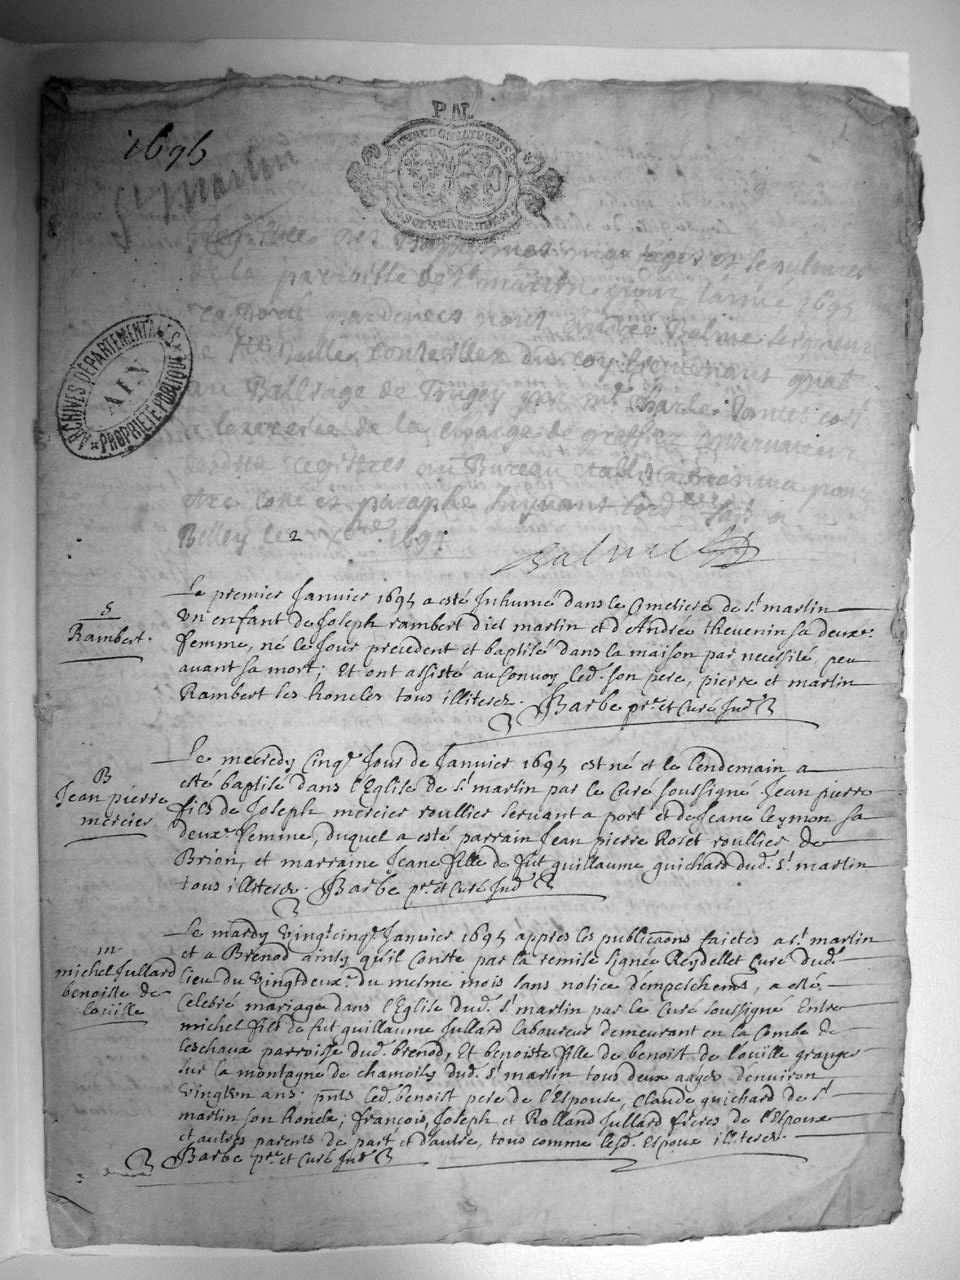 P. N.
1695
St Martin
ARCHIVES DÉPARTEMENTALES
AIN
PROPRIÉTÉ PUBLIQUE
Registre des Baptesmes mariages et sepultures
de la parroisse de St martin pour l'année 1695
Balme seigneur
de conseiller du Roy lieutenant
au Balliage de Bugey par mr Charles
a l'exercise de la charge de greffier conservateur
desdits registres au Bureau estably pour
estre cotté et paraphé suyvant fait a
Belley le 2 xbre 169
Balme
S
Rambert.
Le premier Janvier 1695 a esté Inhumé dans le Cimetiere de st martin
Un enfant de Joseph rambert dict martin et d'Andrée thevenin sa deuxe.
femme, né le Jour precedent et baptisé dans la maison par necessité, peu
avant sa mort; Et ont assisté au Convoy led. son pere, pierre et martin
Rambert ses honcles tous illiterez. Barbe ptre et Curé Jud
B
Jean pierre
mercier
Le mecredy cinqe Jour de Janvier 1695 est né et le lendemain a
esté baptisé dans l'Eglise de st martin par le Curé soussigné Jean pierre
fils de Joseph mercier roullier servant a port et de Jeane leymon sa
deuxe femme, duquel a esté parrain Jean pierre Roset roullier de
Brion, et marraine Jeane fille de fut guillaume guichard dud. st martin
tous illiterez. Barbe ptre et Curé Jud
m
michel Jullard
benoiste de
louille
Le mardy vingtcinqe Janvier 1695 appres les publicaons faictes a st martin
et a Brenod ainsy qu'il conste par la remise signée Reydellet Curé dud.
lieu du vingtdeuxe du mesme mois sans notice d'empeschemt, a esté
Celebré mariage dans l'Eglise dud. st martin par le Curé soussigné Entre
michel fils de fut guillaume Jullard laboureur demeurant en la Combe de
leschaux parroisse dud. brenod, Et benoiste fille de benoist de louille granger
sur la montagne de chamoise dud. st martin tous deux aagés d'environ
vingtsix ans. pnts led. benoist pere de l'Espouse, Claude guichard de st
martin son honcle; françois, Joseph et Rolland Jullard freres de l'Espoux
et autres parents de part et d'autre, tous comme lesd. Espoux illiterez.
Barbe ptre et Curé Jud